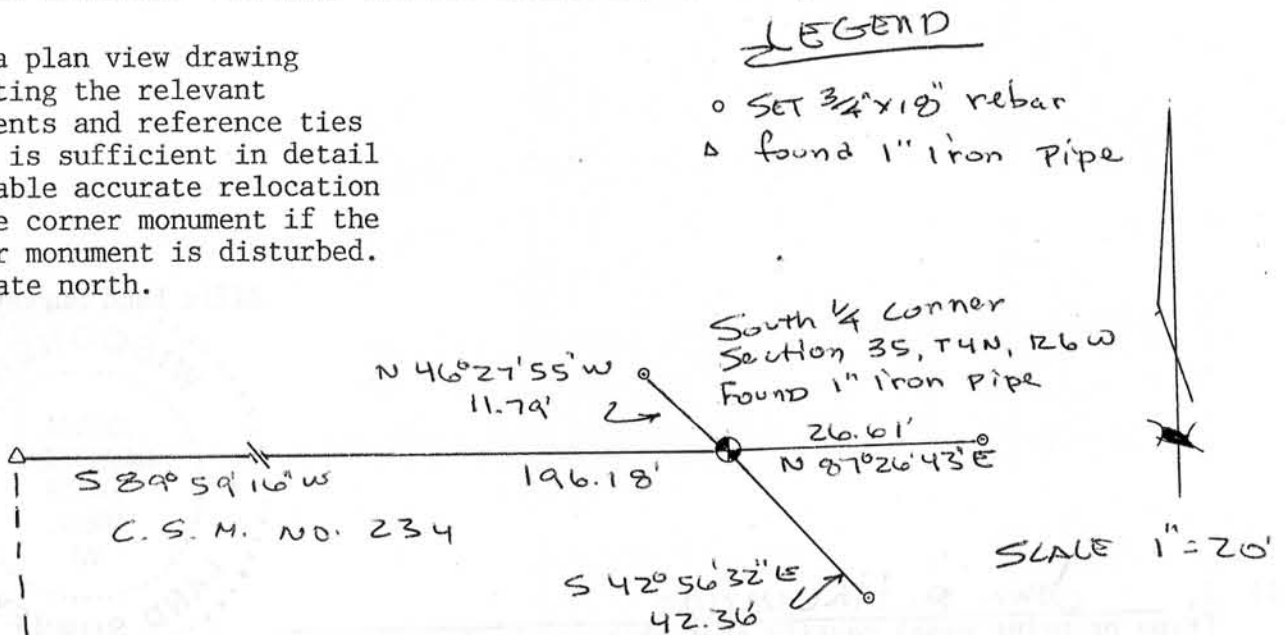 a plan view drawing
ting the relevant
ents and reference ties
is sufficient in detail
able accurate relocation
e corner monument if the
r monument is disturbed.
ate north.
LEGEND
o SET 3/4"x18" rebar
△ found 1" iron pipe
South 1/4 corner
Section 35, T4N, R6W
Found 1" iron pipe
N 46°27'55"W
11.79'
26.61'
N 87°26'43"E
S 89°59'16"W
196.18'
C.S.M. NO. 234
S 42°56'32"E
42.36'
SCALE 1"=20'